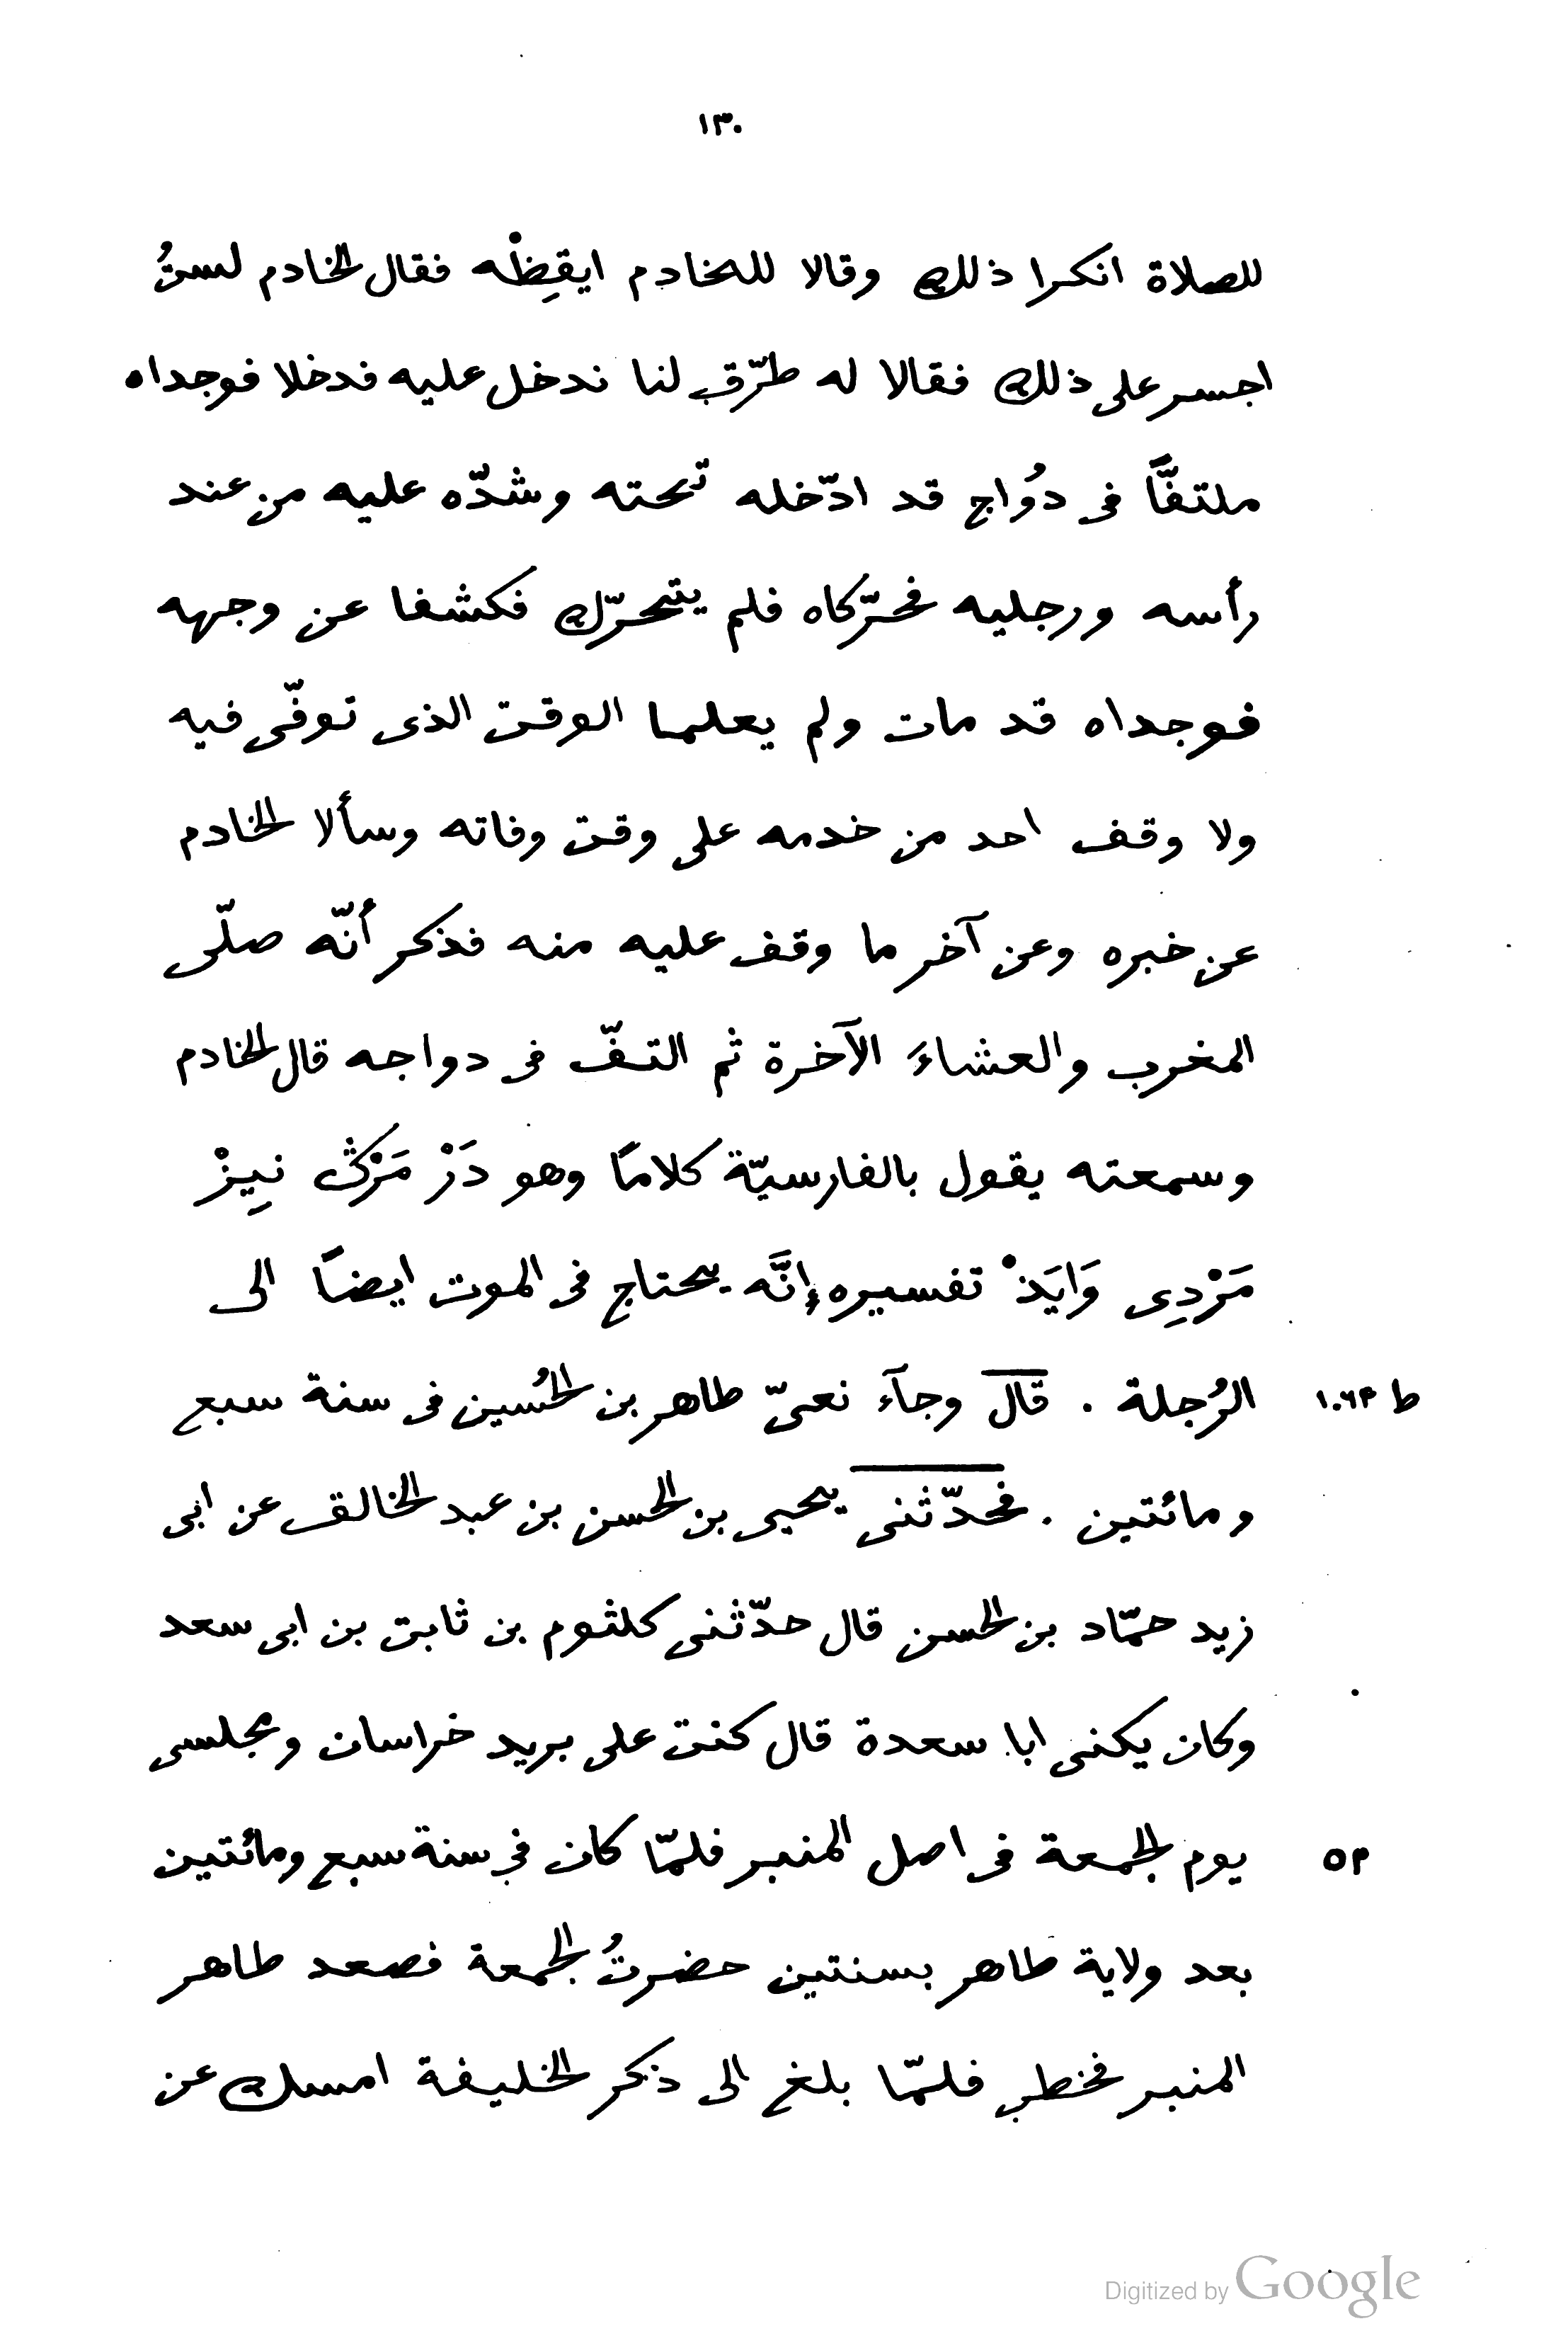 ١٣٠
للصلاة انكرا ذلك وقالا للخادم ايقِظْه فقال الخادم لستُ
اجسر على ذلك فقالا له طرّق لنا ندخل عليه فدخلا فوجداه
ملتفًّا فى دُواج قد ادّخله تحته وشدّه عليه من عند
رأسه ورجليه فحرّكاه فلم يتحرّك فكشفا عن وجهه
فوجداه قد مات ولم يعلما الوقت الذى توفّى فيه
ولا وقف احد من خدمه على وقت وفاته وسألا الخادم
عن خبره وعن آخر ما وقف عليه منه فذكر أنّه صلّى
المغرب والعشاءَ الآخرة ثم التفّ فى دواجه قال الخادم
وسمعته يقول بالفارسيّة كلامًا وهو دَرْ مَرْكْ نِيزْ
مَرْدِى وَايَذْ تفسيره إنَّه يحتاج فى الموت ايضًا الى
الرُجلة . قال وجآء نعىّ طاهر بن الحُسين فى سنة سبع
ط ١٠٦٣
ومائتين . فحدّثنى يحيى بن الحسن بن عبد الخالق عن ابى
زيد حمّاد بن الحسن قال حدّثنى كلثوم بن ثابت بن ابى سعد
وكان يكنى ابا سعدة قال كنت على بريد خراسان ومجلسى
يوم الجمعة فى اصل المنبر فلمّا كان فى سنة سبع ومائتين
بعد ولاية طاهر بسنتين حضرتُ الجمعة فصعد طاهر
المنبر فخطب فلمّا بلغ الى ذكر الخليفة امسك عن
Digitized by Google